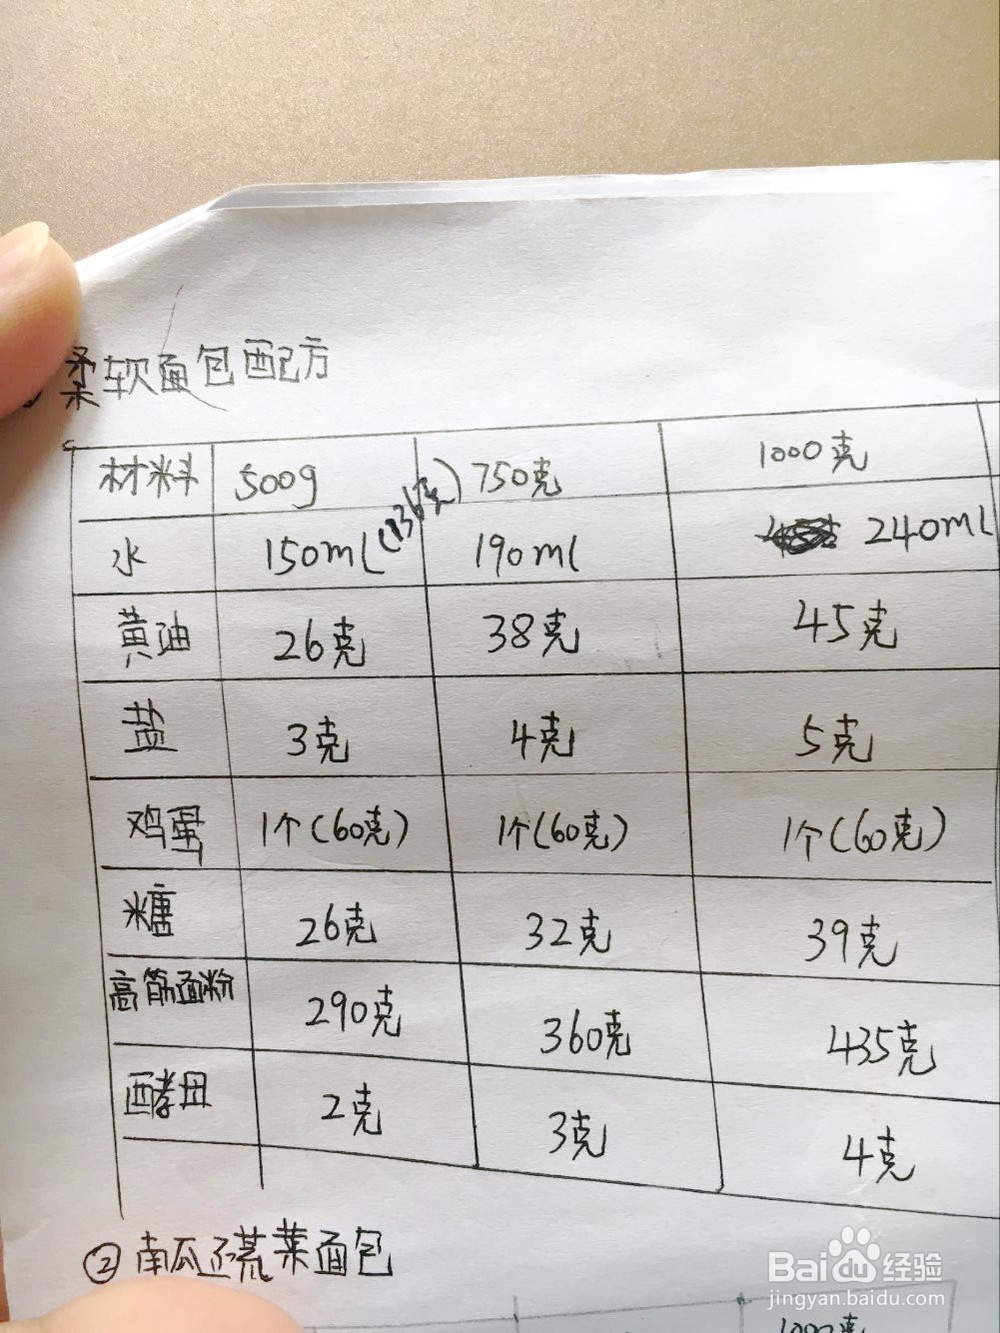 柔软面包配方
材料 500g 750克 1000克
水 150ml(136克) 190ml 240ml
黄油 26克 38克 45克
盐 3克 4克 5克
鸡蛋 1个(60克) 1个(60克) 1个(60克)
米糖 26克 32克 39克
高筋面粉 290克 360克 435克
酵母 2克 3克 4克
② 南瓜 面包
1000克
Baidu经验
jingyan.baidu.com